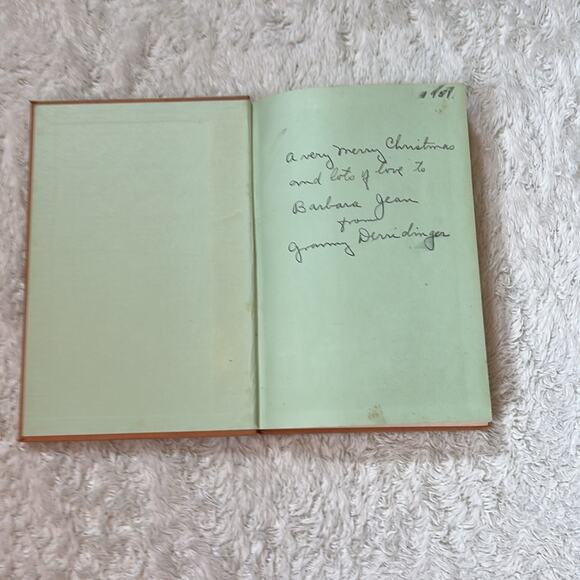 a very merry Christmas
and lots of love to
Barbara Jean
from
granny Derridinger